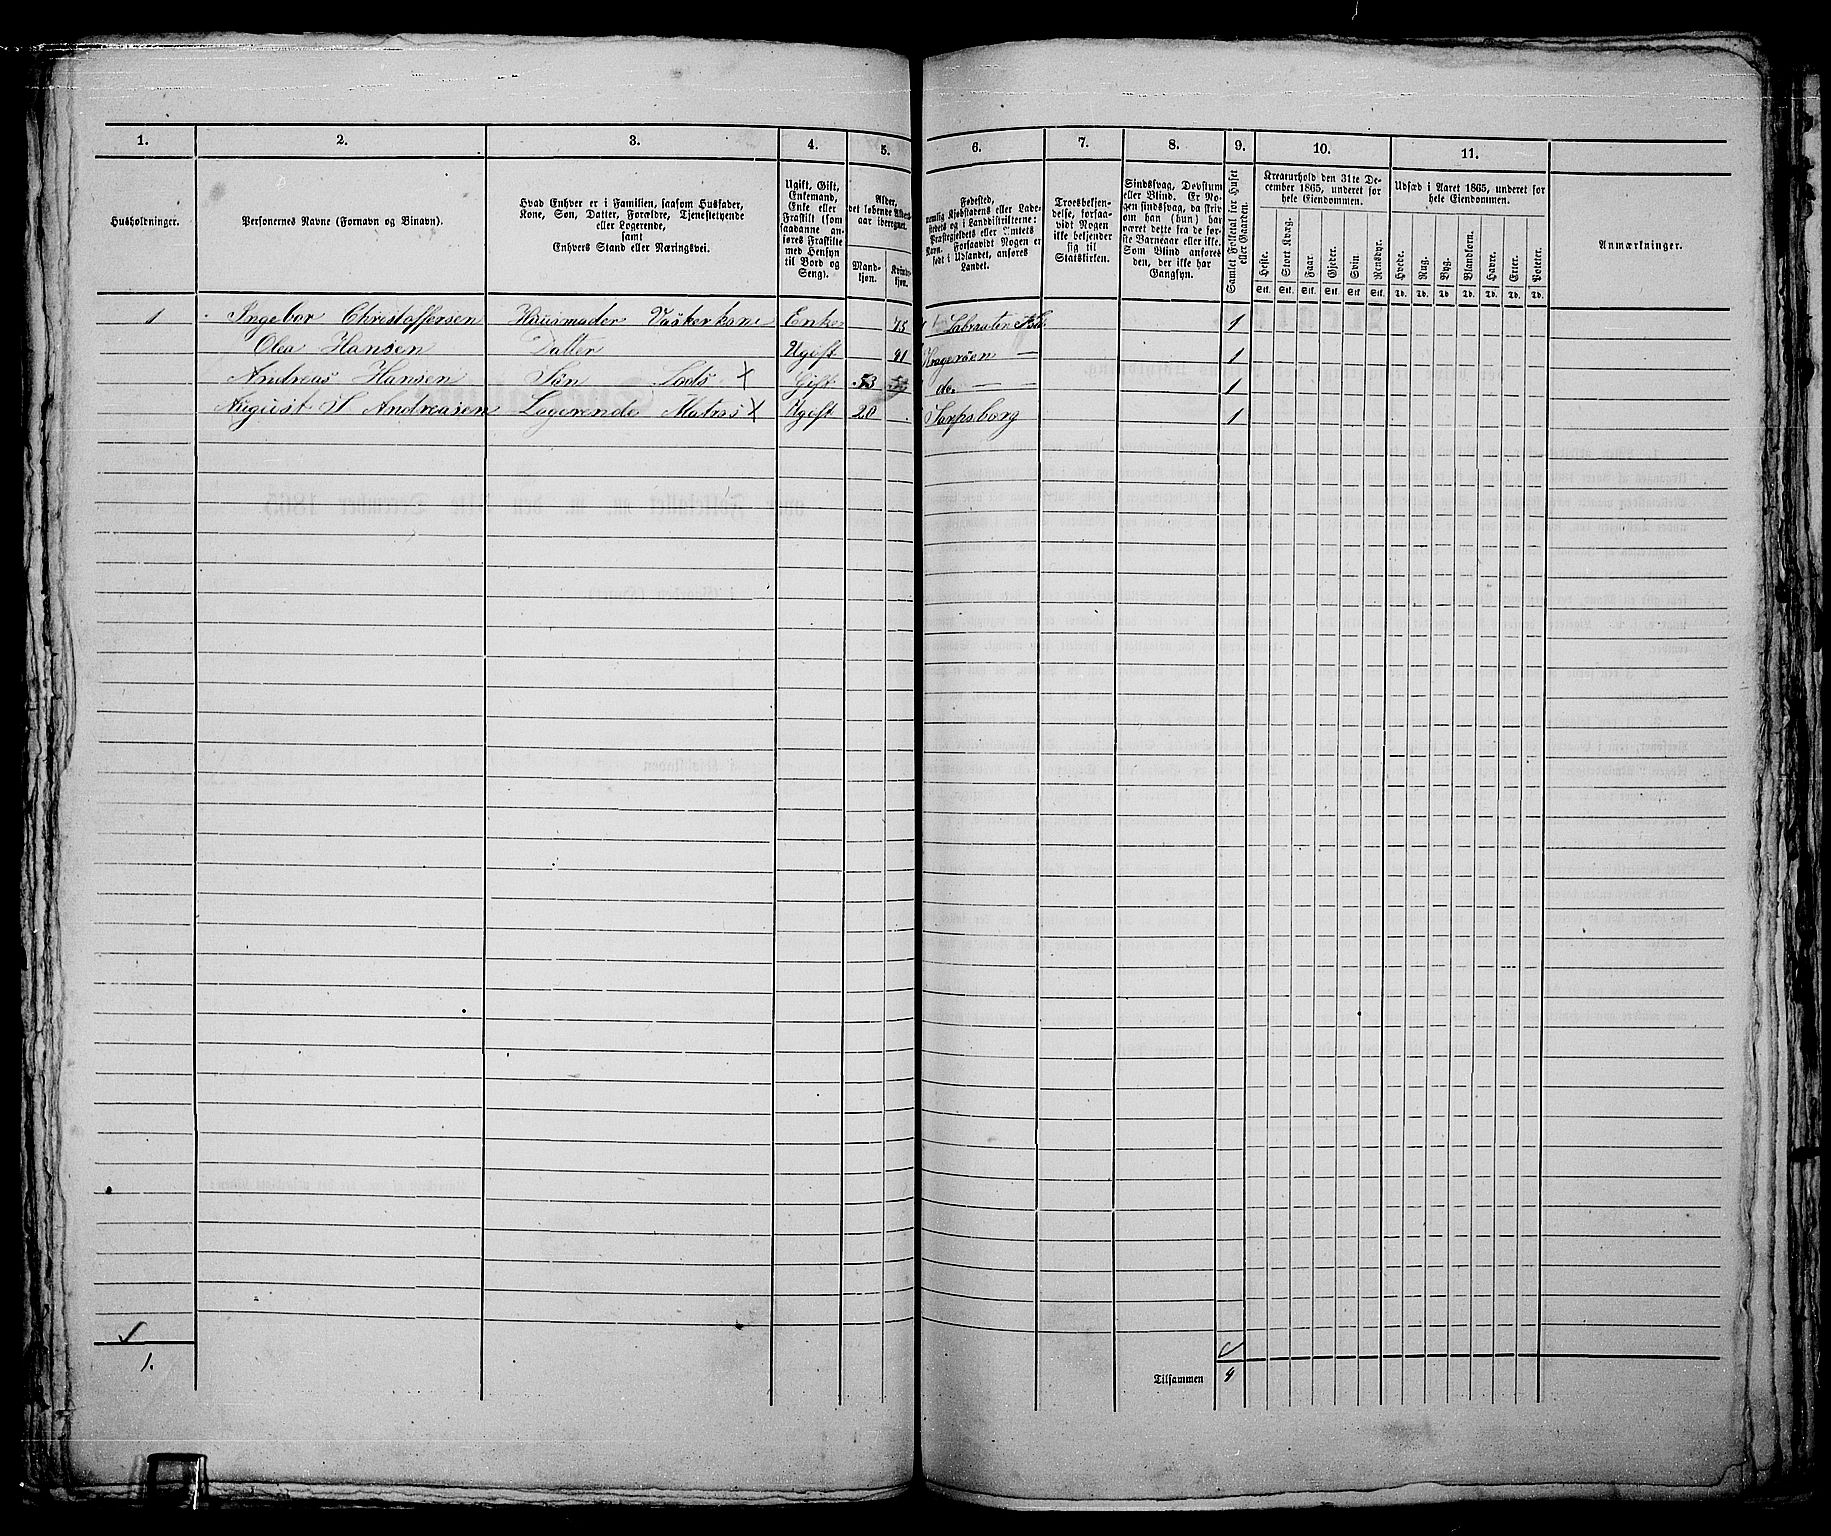 1. 2. 3. 4. 5. 6. 7. 8. 9. 10. 11.
Husholdninger.
Personernes Navne (Fornavn og Binavn).
Hvad Enhver er i Familien, saasom Husfader,
Kone, Søn, Datter, Forældre, Tjenestetyende
eller Logerende,
samt
Enhvers Stand eller Næringsvei.
Ugift, Gift,
Enkemand,
Enke eller
Fraskilt (som
saadanne an-
føres Fraskilte
med Hensyn
til Bord og
Seng).
Alder,
det løbende
aar iberegnet.
Mand-
kjøn.
Kvinde-
kjøn.
Fødested,
nemlig Kjøbstadens eller Lade-
stedets og i Landdistrikterne:
Præstegjeldets eller Amtets
Navn. Forsaavidt Nogen er
født i Udlandet, anføres
Landet.
Troesbekjen-
delse, forsaa-
vidt Nogen
ikke bekjender
sig til
Statskirken.
Sindssvag, Døvstum
eller Blind. Er No-
gen sindssvag, da skriv
om han (hun) har
været dette fra de før-
ste Barneaar eller ikke.
Som Blind anføres
den, der ikke har
Gangsyn.
Samlet Folketal for Huset
eller Gaarden.
Kreaturhold den 31te De-
cember 1865, underet for
hele Eiendommen.
Heste. Stort Kvæg. Faar. Gjeder. Svin. Rensdyr.
Stk. Stk. Stk. Stk. Stk. Stk.
Udsæd i Aaret 1865, underet for
hele Eiendommen.
Hvede. Rug. Byg. Blandkorn. Havre. Erter. Poteter.
Td. Td. Td. Td. Td. Td. Td.
Anmærkninger.
1 Ingebor Christoffersen Huusmoder Vaskerkone Enke 75 1
Olea Hansen Datter Ugift 41 Kragerøen — 1
Andreas Hansen Søn Lods X Gift 53 do. — 1
August S Andreasen Logerende Matros X Ugift 20 Sarpsborg 1
1.
Tilsammen 4